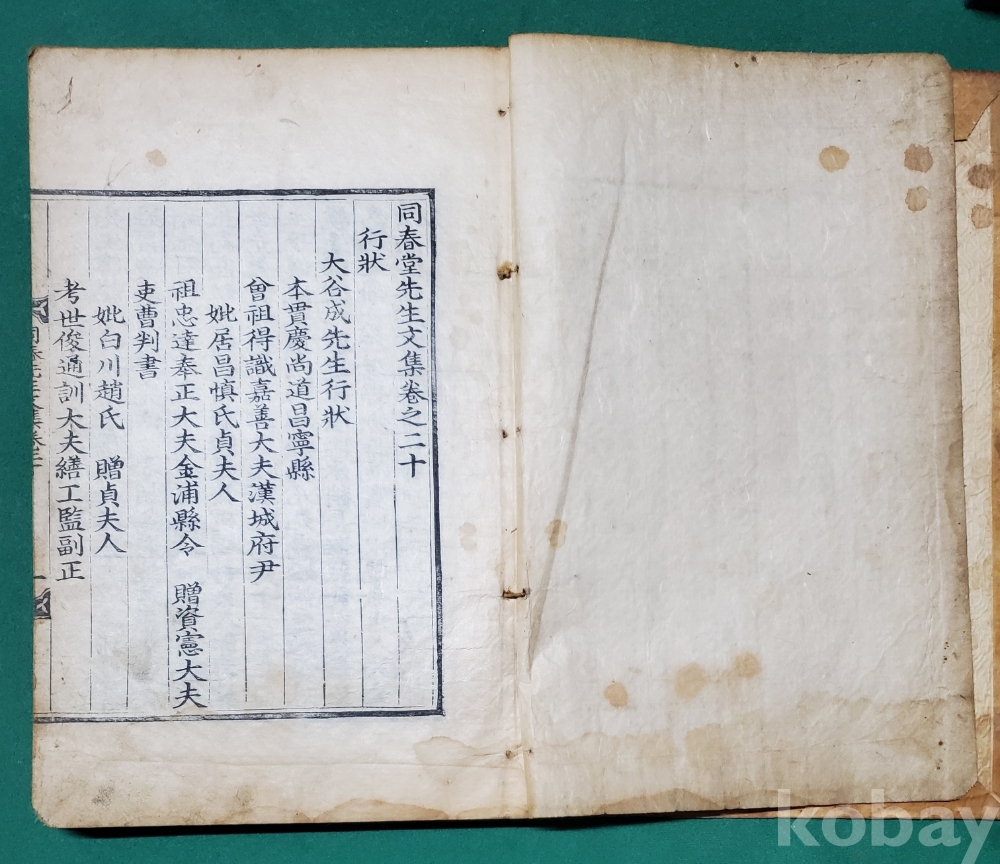 同春堂先生文集卷之二十
行狀
大谷成先生行狀
本貫慶尚道昌寧縣
曾祖得識嘉善大夫漢城府尹
妣居昌愼氏貞夫人
祖忠達奉正大夫金浦縣令 贈資憲大夫
吏曹判書
妣白川趙氏 贈貞夫人
考世俊通訓大夫繕工監副正
kobay